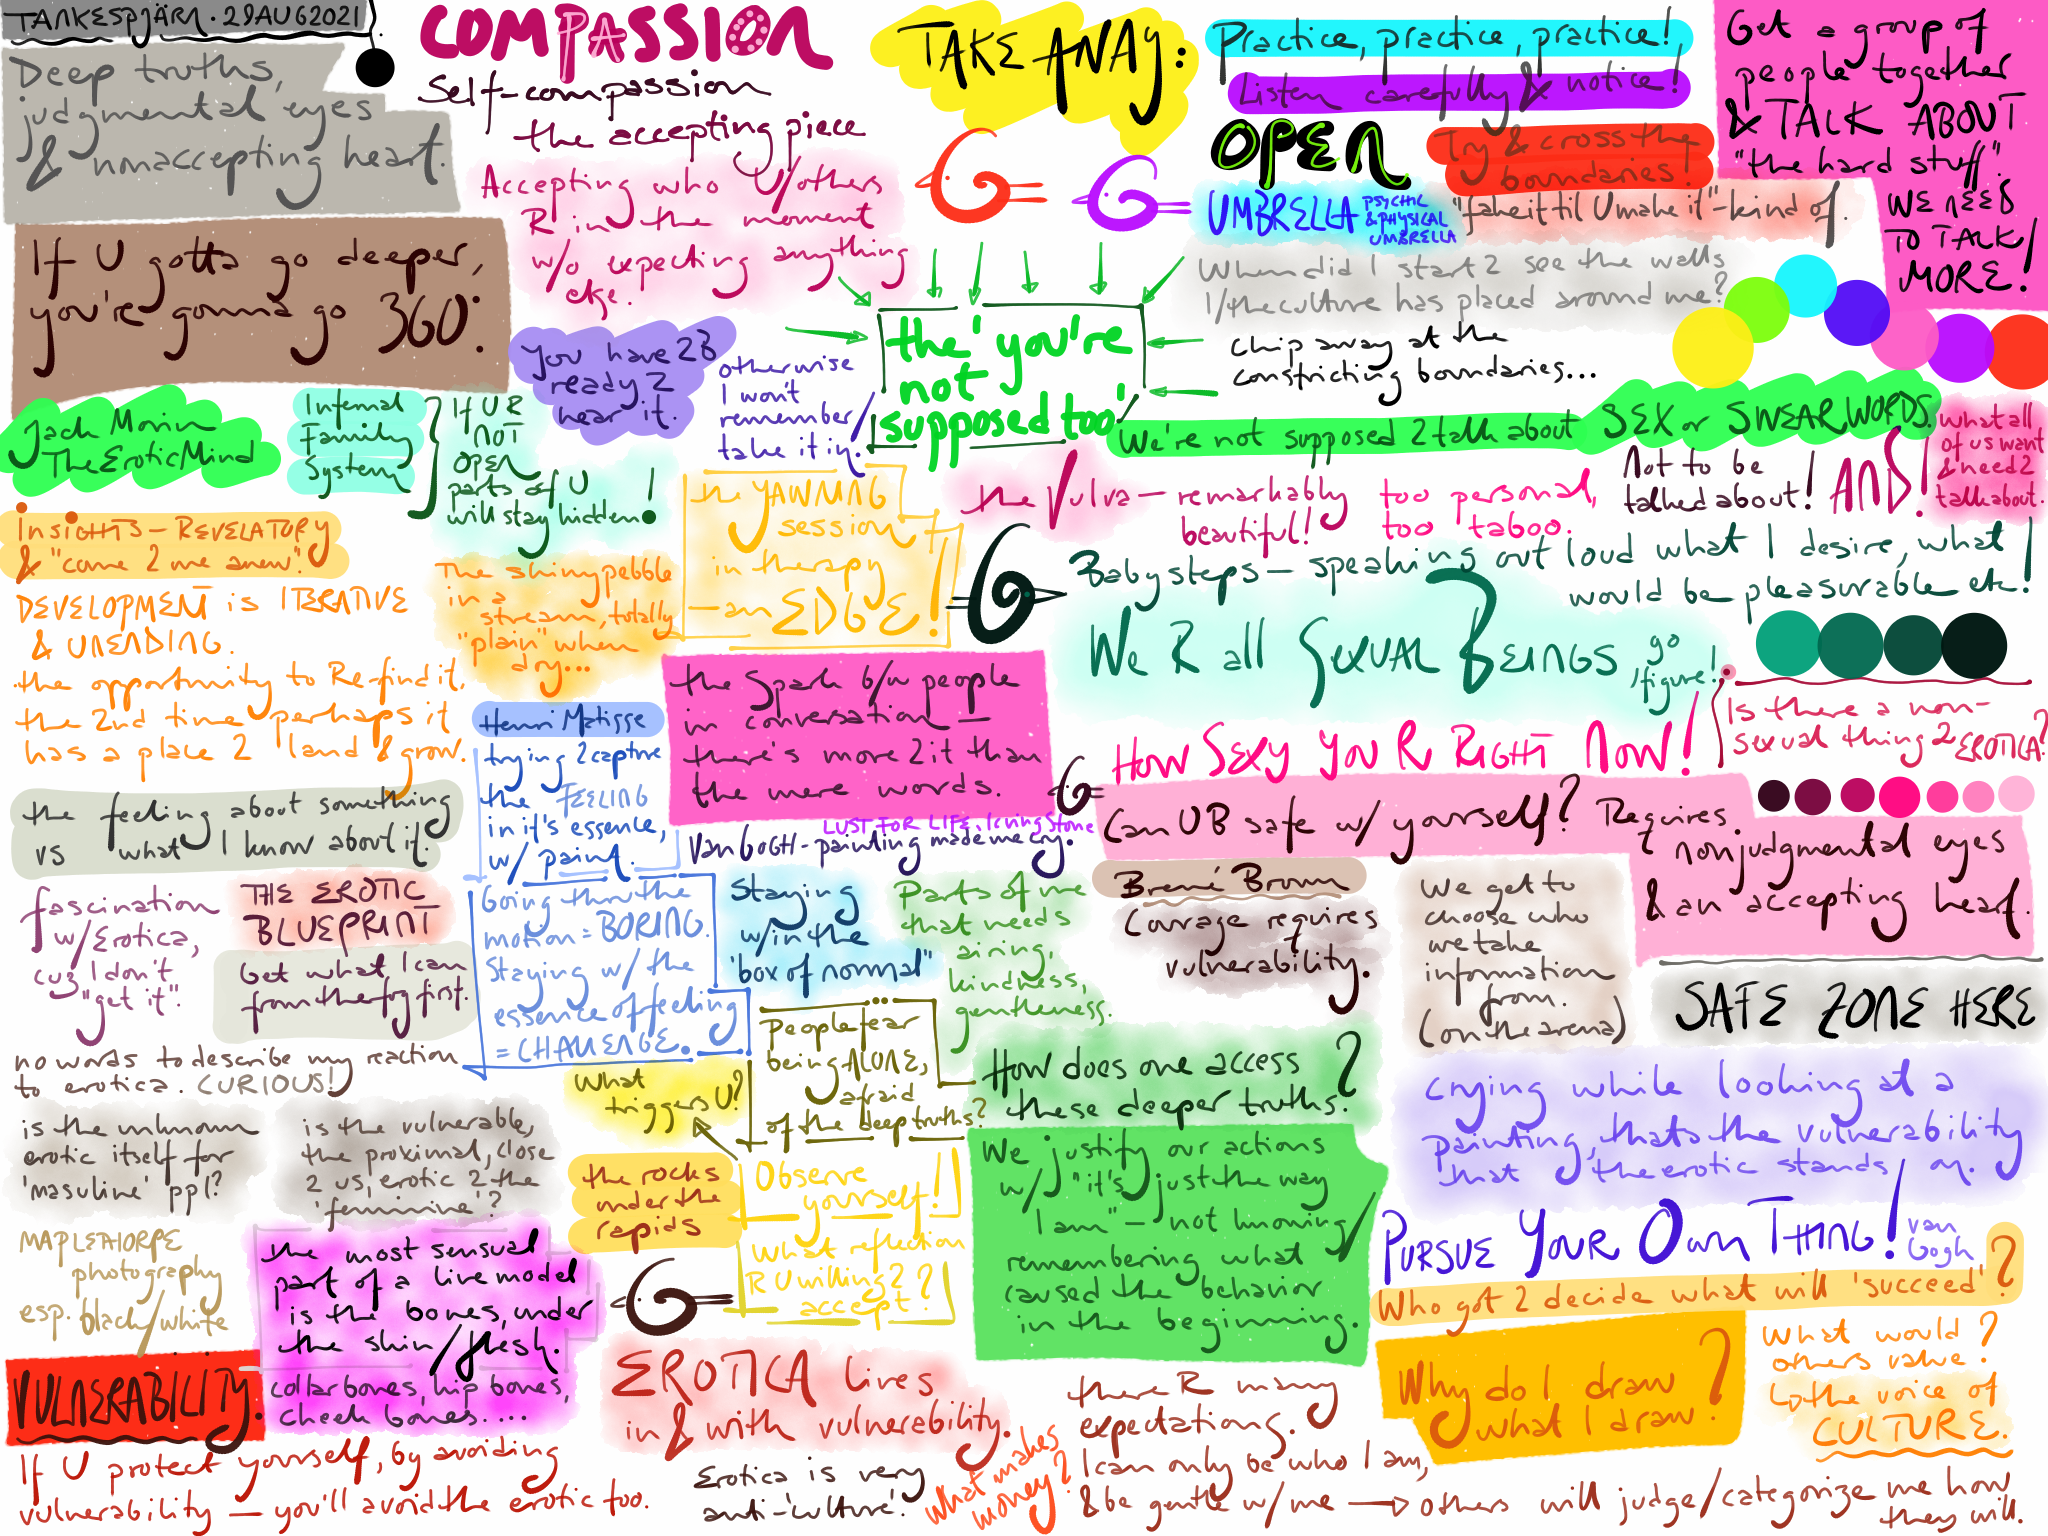 TANKESPJÄRN. 29AUG2021
Deep truths,
judgmental eyes
& nonaccepting heart.
COMPASSION
Self-compassion
the accepting piece
Accepting who U/others
R in the moment
w/o expecting anything
else.
TAKE AWAY:
Practice, practice, practice!,
Listen carefully & notice!
OPEN
Try & cross the
boundaries!
UMBRELLA
PSYCHIC
& PHYSICAL
UMBRELLA
"fake it til U make it"-kind of.
When did I start 2 see the walls
I/the culture has placed around me?
Chip away at the
constricting boundaries...
Get a group of
people together
& TALK ABOUT
"the hard stuff".
WE NEED
TO TALK
MORE!
If U gotta go deeper,
you're gonna go 360°.
You have 2B
ready 2
hear it.
otherwise
I won't
remember/
take it in.
the 'you're
not
supposed too'
We're not supposed 2 talk about SEX or SWEAR WORDS.
Jack Morin
The Erotic Mind
Internal
Family
System
If U R
NOT
OPEN
parts of U
will stay hidden!
the Vulva – remarkably
beautiful!
too personal,
too taboo.
Not to be
talked about!
AND!
what all
of us want
& need 2
talk about.
Insights – REVELATORY
& "came 2 me anew".
DEVELOPMENT is ITERATIVE
& UNENDING.
the opportunity to Re-find it,
the 2nd time perhaps it
has a place 2 land & grow.
The shiny pebble
in a
stream, totally
"plain" when
dry...
the YAWNING
session
in therapy
– an EDGE!
Baby steps – speaking out loud what I desire, what
would be pleasurable etc!
We R all SEXUAL BEINGS
go
figure!
Is there a non-
sexual thing 2 EROTICA?
HOW SEXY YOU R RIGHT NOW!
the Spark b/w people
in conversation –
there's more 2 it than
the mere words.
Henri Matisse
trying 2 capture
the FEELING
in it's essence,
w/ paint.
LUST FOR LIFE, Irving Stone
Van GOGH - painting made me cry.
Can U B safe w/ yourself? Requires
nonjudgmental eyes
& an accepting heart.
the feeling about something
vs what I know about it.
fascination
w/Erotica,
cuz I don't
"get it".
THE EROTIC
BLUEPRINT
Get what I can
from the fog first.
Going thru the
motion = BORING.
Staying w/ the
essence of feeling
= CHALLENGE.
Staying
w/in the
"box of normal"
Parts of me
that needs
airing,
kindness,
gentleness.
Brené Brown
Courage requires
vulnerability.
We get to
choose who
we take
information
from.
(on the arena)
SAFE ZONE HERE
no words to describe my reaction
to erotica. CURIOUS!
People fear
being ALONE,
afraid
of the deep truths?
What
triggers U?
How does one access
these deeper truths?
Crying while looking at a
painting, thats the vulnerability
that the erotic stands on.
is the unknown
erotic itself for
'masculine' ppl?
is the vulnerable,
the proximal, close
2 us, erotic 2 the
'feminine'?
the rocks
under the
rapids
Observe
yourself!
What reflection
R U willing 2
accept?
We justify our actions
w/ "it's just the way
I am" – not knowing/
remembering what
caused the behavior
in the beginning.
PURSUE YOUR OWN THING!
van
Gogh
Who got 2 decide what will 'succeed'?
MAPLETHORPE
photography
esp. black/white
the most sensual
part of a live model
is the bones, under
the skin/flesh.
collarbones, hip bones,
cheek bones....
VULNERABILITY.
If U protect yourself, by avoiding
vulnerability – you'll avoid the erotic too.
EROTICA lives
in & with vulnerability.
Erotica is very
anti-'culture'.
what makes
money?
there R many
expectations.
I can only be who I am,
& be gentle w/ me → others will judge/categorize me how
they will.
Why do I draw
what I draw?
What would
others value?
↳ the voice of
CULTURE.